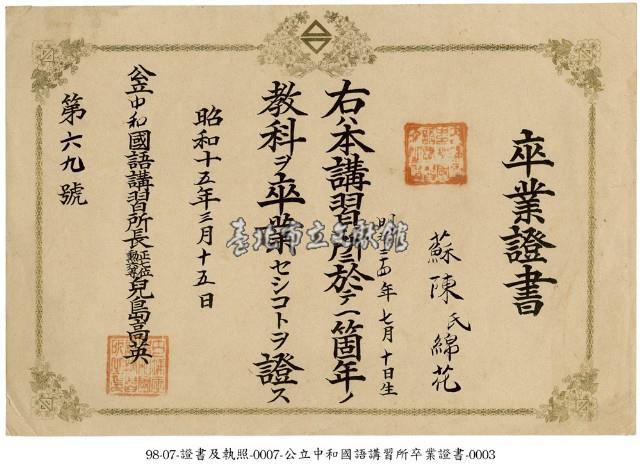 卒業證書
蘇陳氏綿花
年七月十日生
右ハ本講習所ニ於テ一箇年ノ
教科ヲ卒業セシコトヲ證ス
昭和十五年三月十五日
公立中和國語講習所長正七位勲六等兒島高英
第六九號
臺北市立文獻館
98-07-證書及執照-0007-公立中和國語講習所卒業證書-0003